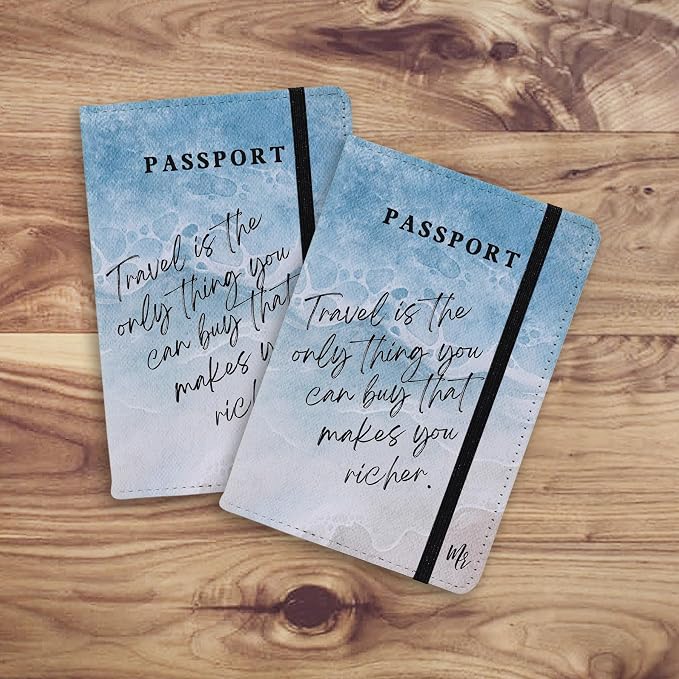 PASSPORT
Travel is the
only thing you
can buy that
makes you
rich
PASSPORT
Travel is the
only thing you
can buy that
makes you
richer.
Mr